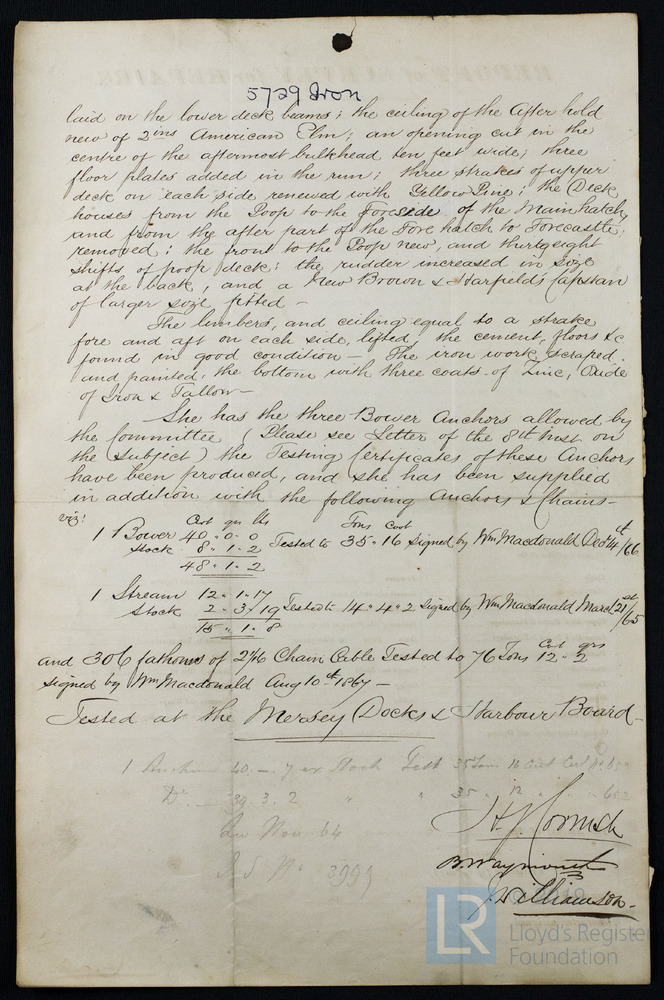 5729 Iron
laid on the lower deck beams; the ceiling of the After hold
new of 2ins American Elm; an opening cut in the
centre of the aftermost bulkhead ten feet wide; three
floor plates added in the run; three strakes of upper
deck on each side renewed with Yellow Pine; the Deck
houses from the Poop to the Foreside of the Main hatch,
and from the after part of the Fore hatch to Forecastle,
removed; the front to the Poop new, and thirtyeight
shifts of poop deck; the rudder increased in size
at the back, and a New Brown & Harfield's Capstan
of larger size fitted —
The limbers, and ceiling equal to a strake
fore and aft on each side, lifted, the cement, floors &c
found in good condition — The iron work scraped
and painted, the bottom with three coats of Zinc, Oxide
of Iron & Tallow —
She has the three Bower Anchors allowed by
the Committee (Please see Letter of the 8th inst. on
the Subject) the Testing Certificates of these Anchors
have been produced, and she has been supplied
in addition with the following Anchors & Chains —
viz:
Cwt qrs lbs Tons Cwt
1 Bower 40 " 0 " 0 Tested to 35 " 16 signed by Wm Macdonald Decr 14th/66
Stock 8 " 1 " 2
48 " 1 " 2
1 Stream 12 " 1 " 17
Stock 2 " 3 / 19 Tested to 14 " 4 " 2 signed by Wm Macdonald March 21st/65
15 " 1 " 8
and 306 fathoms of 2 1/16 Chain Cable Tested to 76 Tons 12 Cwt 2 qrs
signed by Wm Macdonald Augt 10th 1867 —
Tested at the Mersey Docks & Harbour Board —
1 Anchor 40 . — . 7 ex Stock Test 35 Tons 16 Cwt
Do 39 . 3 . 2 " " 35 " 12
Nov 64
No 3999
H J Cornish
B. Waymouth
J. Williamson
LR
Lloyd's Register
Foundation